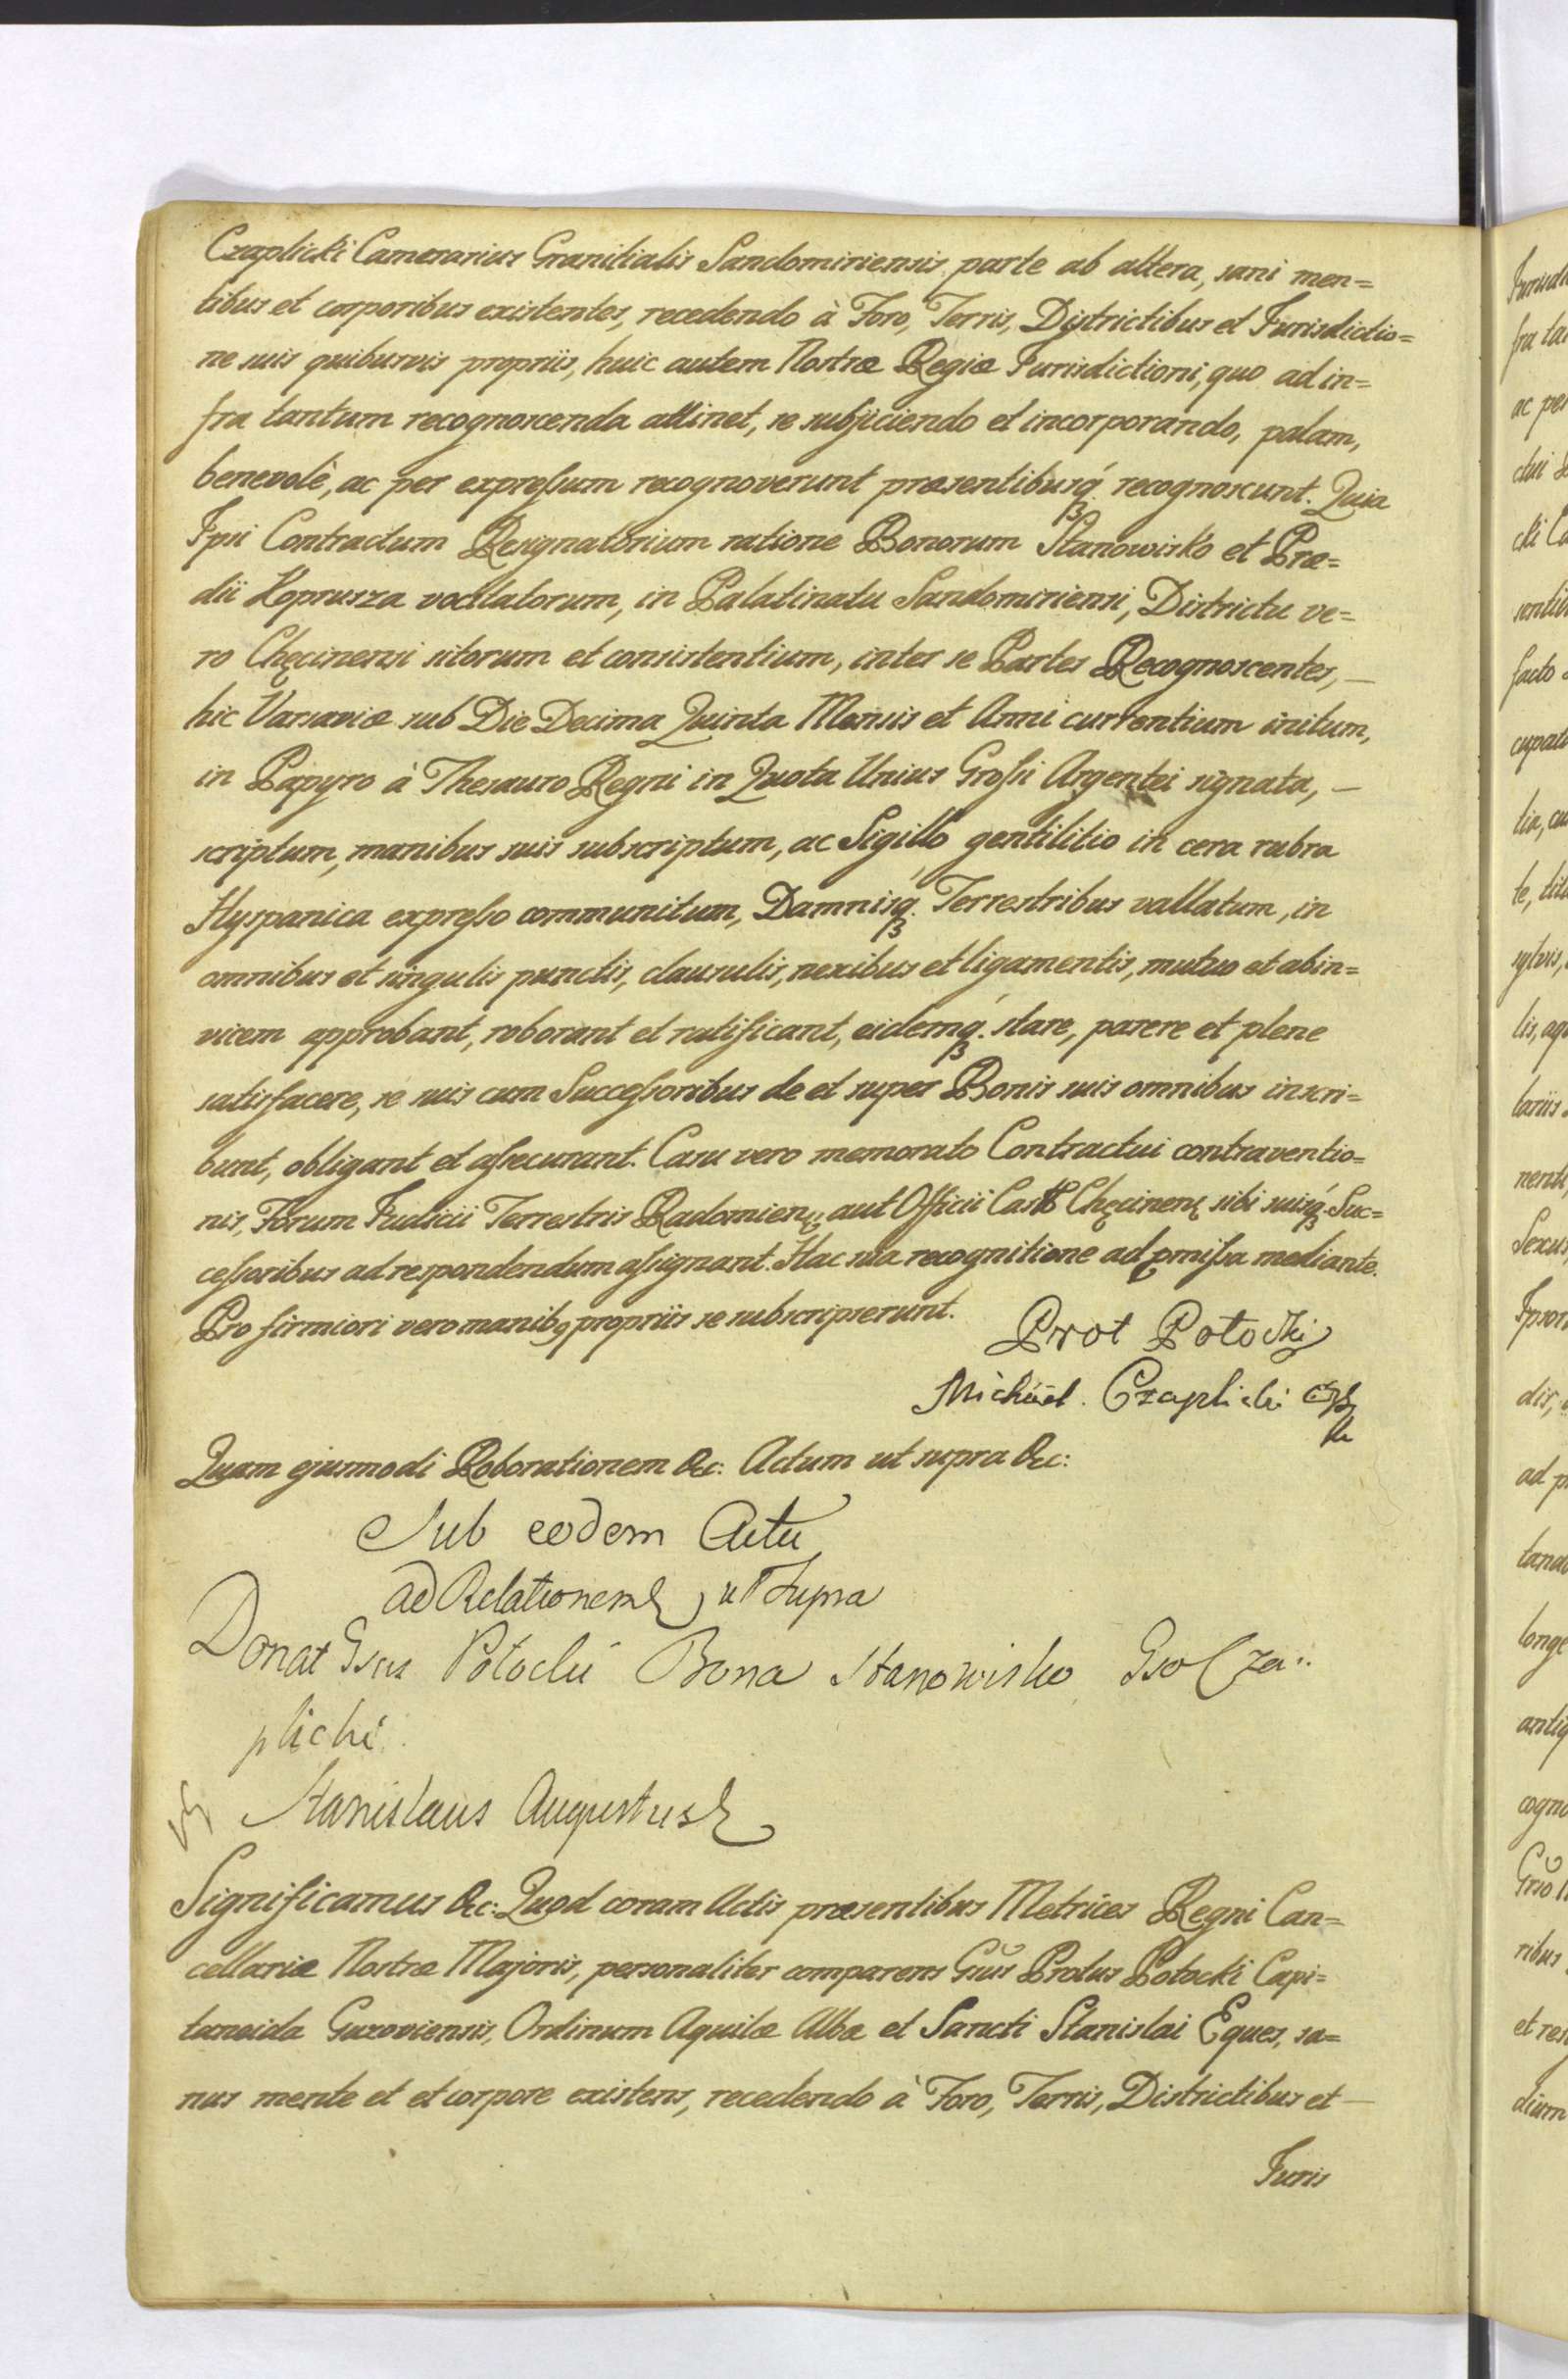 Czaplicki Camerarius Granitialis Sandomiriensis parte ab altera, sani men=
tibus et corporibus existentes, recedendo à Foro, Terris, Districtibus et Jurisdictio=
ne suis quibusvis propriis, huic autem Nostræ Regiæ Jurisdictioni, quo ad in=
fra tantum recognoscenda attinet, se subjiciendo et incorporando, palam,
benevolè, ac per expressum recognoverunt præsentibusq́ꝫ recognoscunt. Quia
Ipsi Contractum Resignatorium ratione Bonorum Stanowisko et Præ=
dii Koprusza vocitatorum, in Palatinatu Sandomiriensi, Districtu ve=
ro Chęcinensi sitorum et consistentium, inter se Partes Recognoscentes, —
hic Varsaviæ sub Die Decima Quinta Mensis et Anni currentium initum,
in Papyro à Thesauro Regni in Quota Unius Grossi Argentei signata, —
scriptum, manibus suis subscriptum, ac Sigillo gentilitio in cera rubra
Hyspanica expresso communitum, Damnisq́ꝫ Terrestribus vallatum, in
omnibus et singulis punctis, clausulis, nexibus et ligamentis, mutuo et abin=
vicem approbant, roborant et ratificant, eidemq́ꝫ stare, parere et plene
satisfacere, se suis cum Successoribus de et super Bonis suis omnibus inscri=
bunt, obligant et assecurant. Casu vero memorato Contractui contraventio=
nis, Forum Judicii Terrestris Radomien: aut Officii Castr Chęcinen sibi suisq́ꝫ Suc=
cessoribus ad respondendum assignant. Hac sua recognitione ad pmissa mediante.
Pro firmiori vero manibꝰ propriis se subscripserunt.
Prot Potocki
Michael. Czaplicki
Quam ejusmodi Roborationem &c: Actum ut supra &c:
Sub eodem Actu
ad Relationem ut supra
Donat Gsus Potocki Bona Stanowisko Gso Cza=
plicki
Stanislaus Augustus
Significamus &c: Quod coram Actis præsentibus Metrices Regni Can=
cellariæ Nostræ Majoris, personaliter comparens Gsus Protus Potocki Capi=
taneida Guzoviensis, Ordinum Aquilæ Albæ et Sancti Stanislai Eques, sa=
nus mente et et corpore existens, recedendo à Foro, Terris, Districtibus et —
Juris